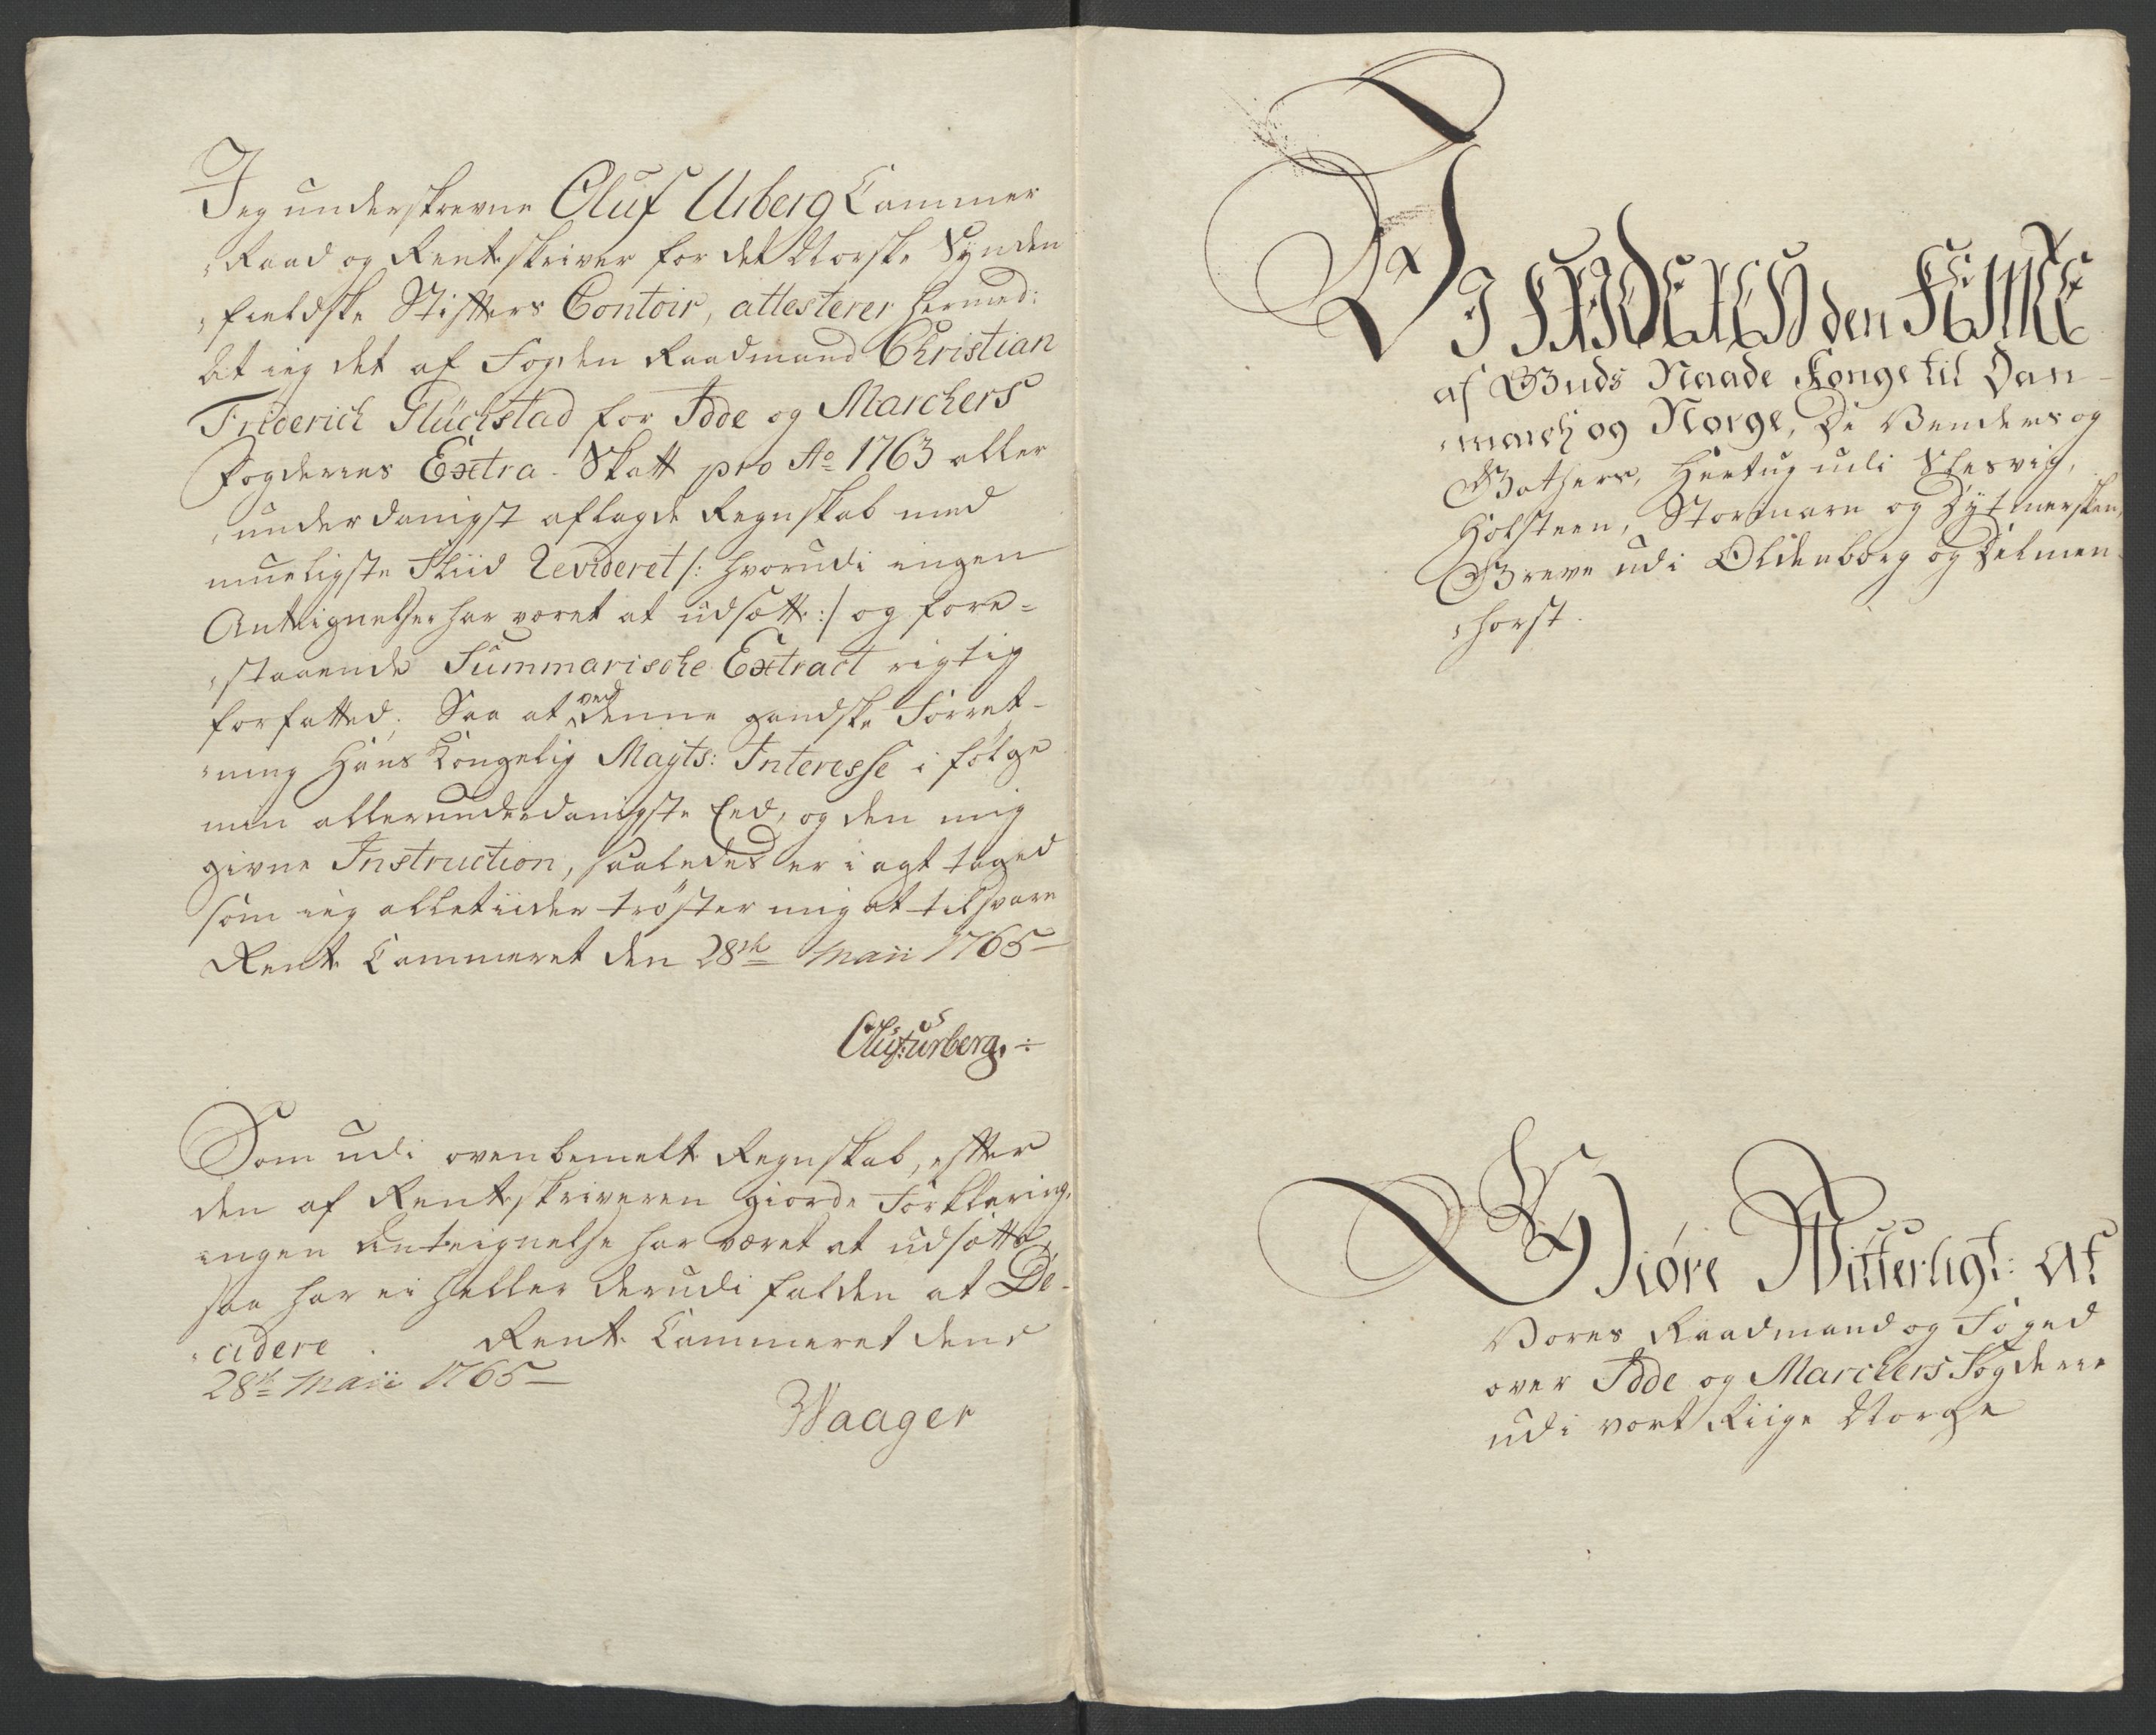 Jeg underskrevne Oluf Urberg Cammer
„Raad og Rentskriver for det Norske Synden
„fieldske Stifters Contoir, attesterer hermed:
At ieg det af Fogden Raadmand Christian
Friderich Glückstad for Idde og Marchers
Fogderies Extra-Skatt pro Ao 1763 aller
„underdanigst aflagde Regnskab med
mueligste Fliid Revideret /: hvorudi ingen
Anteignelser har været at udsætte :/ og fore=
„staaende Summarische Extract rigtig
forfatted; Saa at ved denne gandske Forret-
„ning Hans Kongelig Mayts: Interesse i følge
min allerunderdanigste Eed, og den mig
givne Instruction, saaledes er i agt taged
som ieg alletiider trøster mig at tilsvare
Rente Cammeret den 28de Maii 1765
Oluf Urberg.
Som udi ovenbemelte Regnskab, efter
den af Rentskriveren giorde Forklaring,
ingen Anteignelse har været at udsætte,
saa har ei heller derudi falden at De-
„cidere. Rente Cammeret den
28de Maii 1765
Waager
VI FRIDERICH den FEMTE
af Guds Naade Konge til Dan-
„march og Norge, De Venders og
Gothers, Hertug udi Slesvig,
Holsteen, Stormarn og Dytmersken,
Greve udi Oldenborg og Delmen-
„horst.
Giøre Witterligt: At
Vores Raadmand og Foged
over Idde og Marchers Fogderie
udi vort Riige Norge